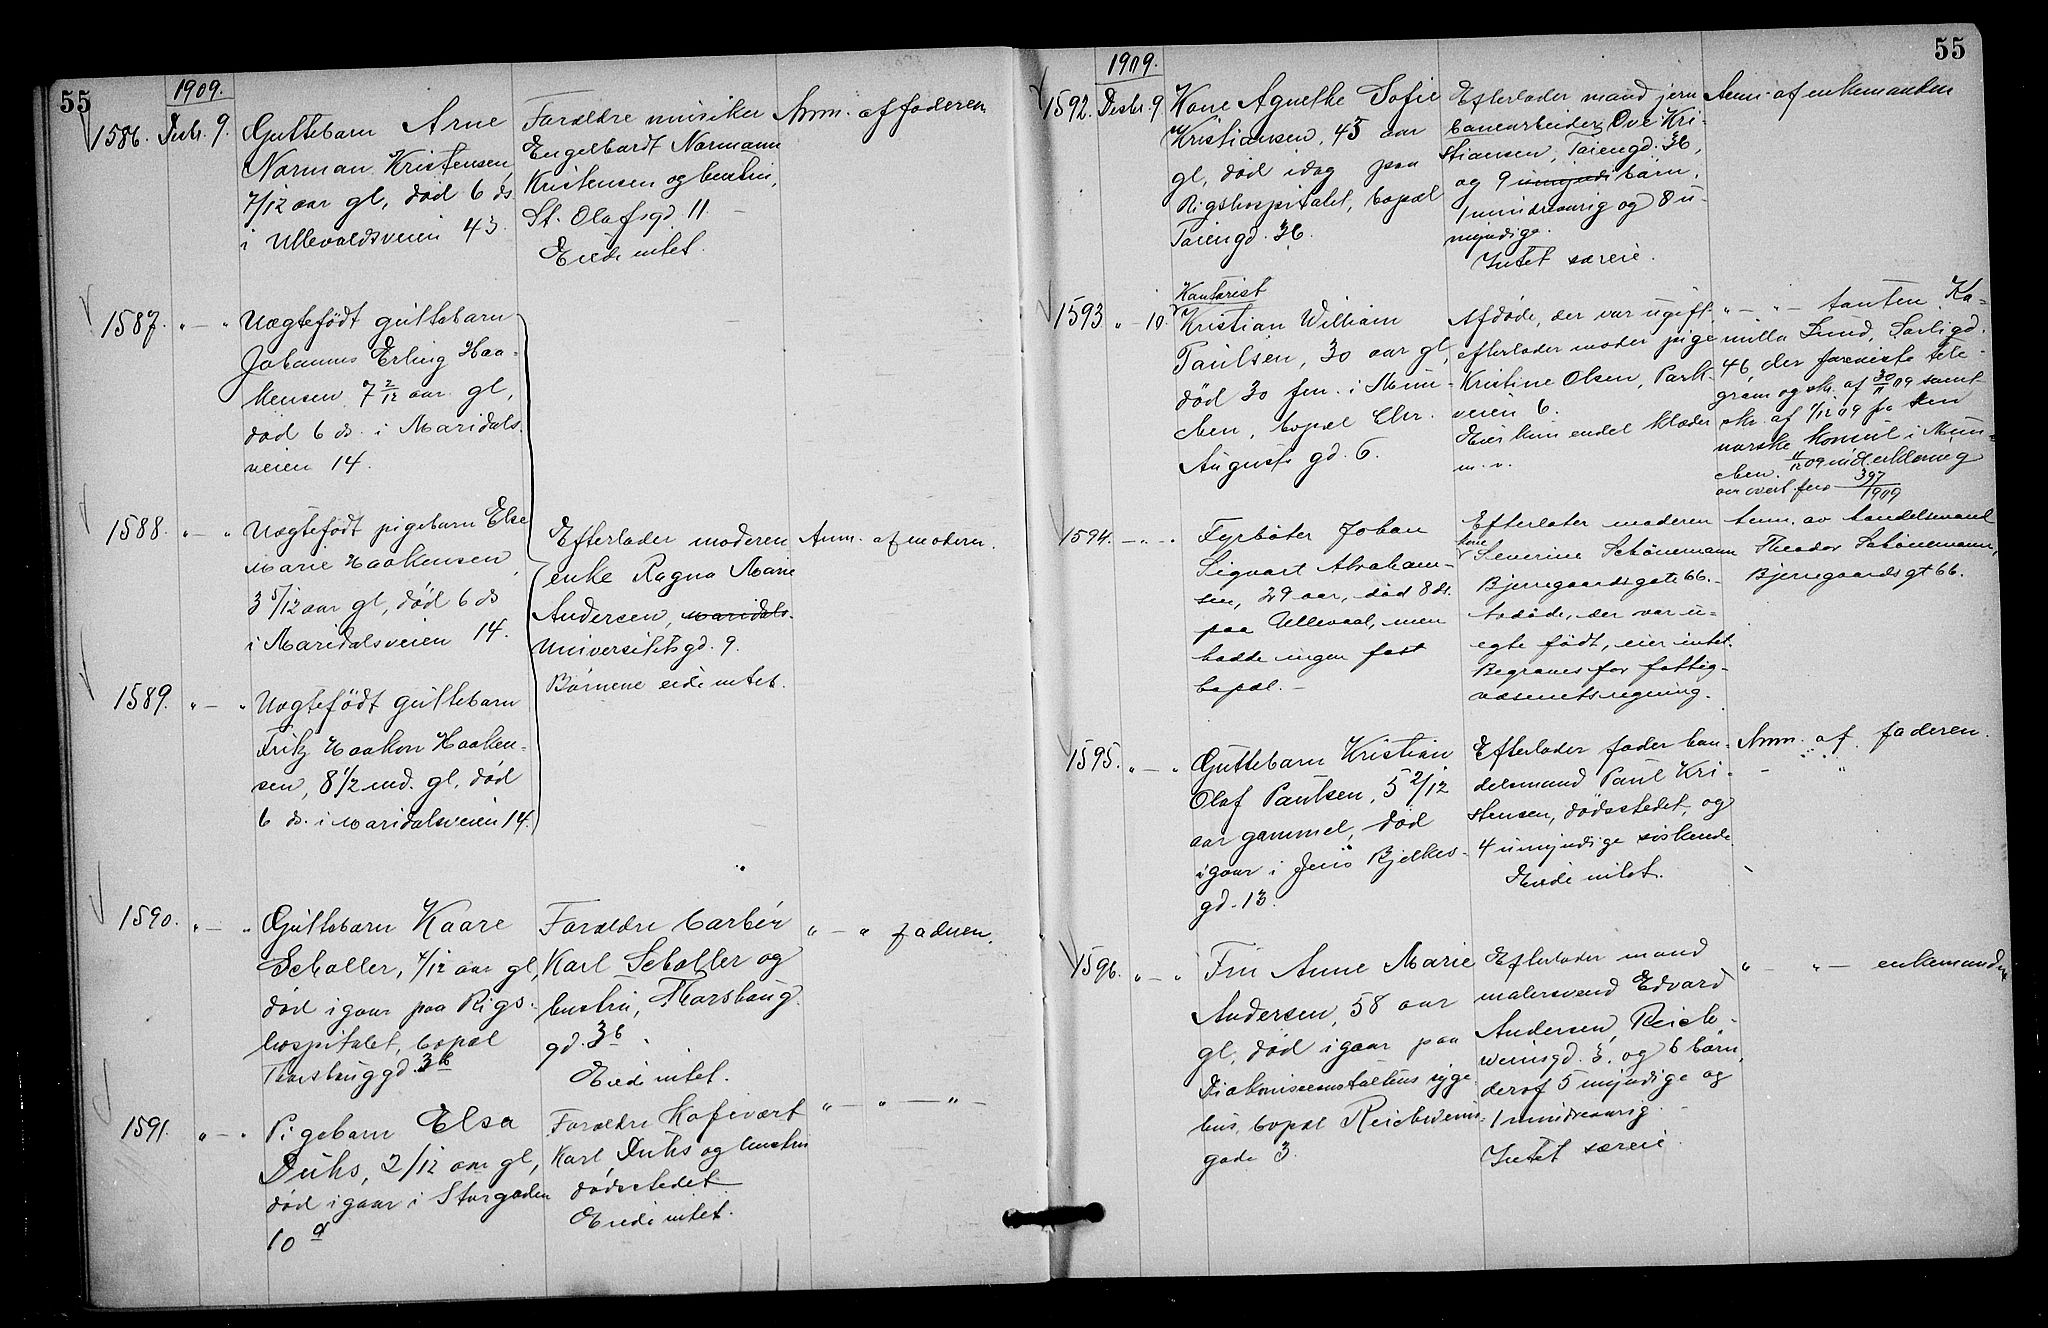 55
1909.
1586. Decbr. 9.
Guttebarn Arne
Norman Kristensen,
7/12 aar gl, død 6 ds
i Ullevoldsveien 43.
Forældre musiker
Engelhardt Normann
Kristensen og hustru,
St. Olafsgd. 11. –
Eiede intet.
Anm. af faderen
1587. " — "
Uægtefødt guttebarn
Johannes Erling Haa-
kensen 7 2/12 aar gl,
død 6 ds. i Maridals-
veien 14.
1588. " — "
Uægtefødt pigebarn Else
Marie Haakensen,
3 5/12 aar gl, død 6 ds
i Maridalsveien 14.
Efterlader moderen
enke Ragna Marie
Andersen, Maridals-
Universitetsgd. 9.
Børnene eide intet.
Anm. af moderen.
1589. " — "
Uægtefødt guttebarn
Fritz Haakon Haaken-
sen, 8 1/2 md. gl, død
6 ds. i Maridalsveien 14.
1590. " — "
Guttebarn Kaare
Scholler, 4/12 aar gl,
død igaar paa Rigs-
hospitalet, bopæl
Thorshauggd. 3b
Forældre barbér
Karl Scholler og
hustru, Thorshaug
gd. 3b.
Eiede intet.
" — " faderen.
1591. " — "
Pigebarn Elsa
Duhs, 2/12 aar gl,
død igaar i Storgaden
10 a
Forældre Kafevært
Karl Duhs og hustru
dødsstedet
Eiede intet.
" — " — " —
55
1909.
1592. Decbr. 9
Kone Agnethe Sofie
Kristiansen, 45 aar
gl, død idag paa
Rigshospitalet, bopæl
Tøiengd. 36.
Efterlader mand jern
banearbeider Ove Kri-
stiansen, Tøiengd. 36,
og 9 umyndi børn,
1 mindreaarig og 8 u-
myndige.
Intet særeie.
Anm. af enkemanden
1593 " — 10.
Kontorist
Kristian William
Paulsen, 30 aar gl,
død 30 f.m. i Mün-
chen, bopæl Chr.
Augusts gd. 6.
Afdøde, der var ugift
efterlader moder pige
Kristine Olsen, Park-
veien 6.
Eier kun endel klæder
m. v.
" — " — tanten Ka-
milla Lund, Sorligd.
46 der foreviste tele-
gram og skr. af 30/11 09 samt
skr. af 1/12 09 fra den
norske konsul i Mün-
chen.
397/1909
1594. — " — "
Fyrbøter Johan
Sigvart Abraham-
sen, 29 aar, død 8 ds.
paa Ullevaal, men
hadde ingen fast
bopæl. –
Efterlater moderen
kone
Severine Schönemann
Bjerregaardsgate 66. –
Avdøde, der var u-
egte født, eier intet.
Begraves for fattig-
væsenets regning.
Anm. av handelsmand
Theodor Schönemann,
Bjerregaardsgt 66.
1595. " — "
Guttebarn Kristian
Olaf Paulsen, 5 2/12
aar gammel, død
igaar i Jens Bjelkes-
gd. 13.
Efterlader fader han-
delsmand Paul Kri-
stensen, dødsstedet, og
4 umyndige søskende
Eiede intet.
Anm. af faderen.
1596. " — "
Fru Anne Marie
Andersen, 58 aar
gl, død igaar paa
Diakonisseanstaltens syge-
hus, bopæl Reichweins-
gade 3.
Efterlader mand
malersvend Edvard
Andersen, Reich-
weinsgd. 3. og 6 børn,
deraf 5 myndige og
1 mindreaarig. –
Intet særeie.
" — " — enkemanden